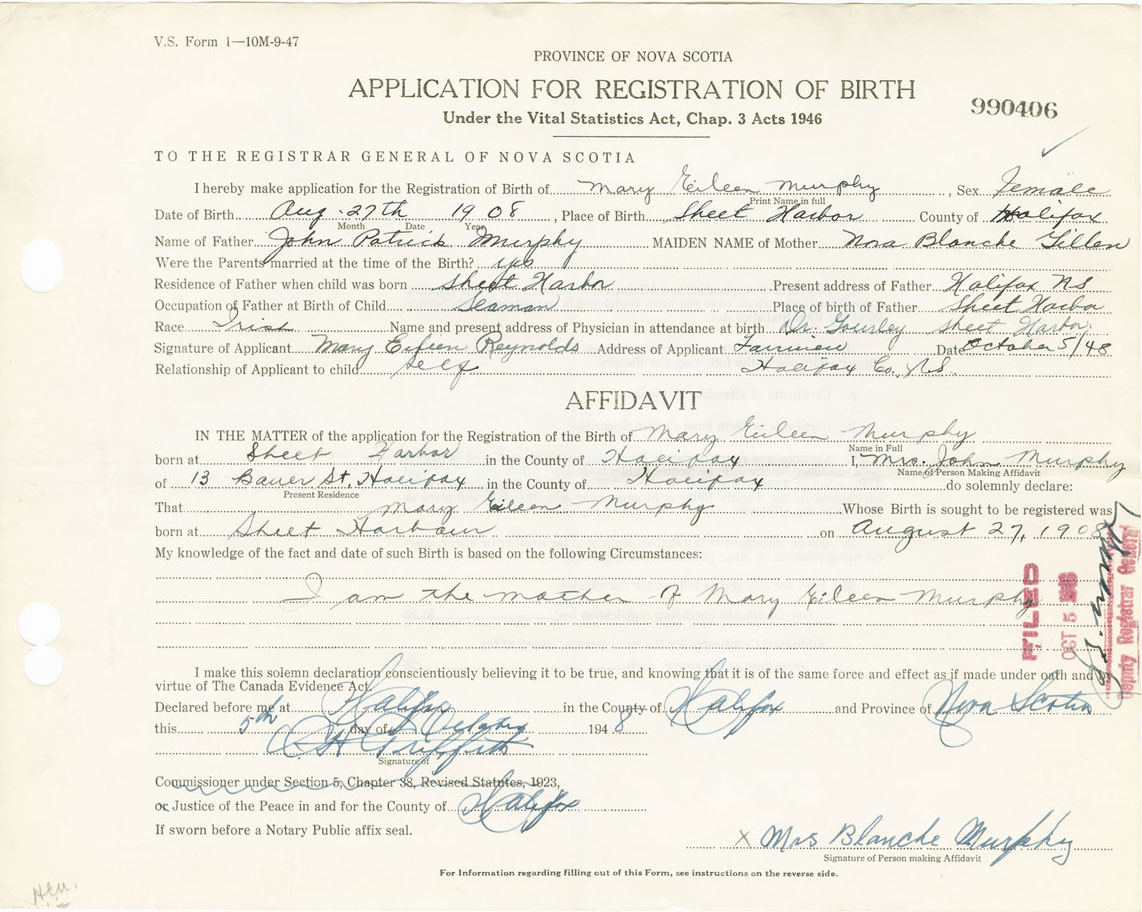 V.S. Form 1—10M-9-47
PROVINCE OF NOVA SCOTIA
APPLICATION FOR REGISTRATION OF BIRTH
990406
Under the Vital Statistics Act, Chap. 3 Acts 1946
TO THE REGISTRAR GENERAL OF NOVA SCOTIA
I hereby make application for the Registration of Birth of Mary Eileen Murphy, Sex Female
Print Name in full
Date of Birth Aug. 27th 1908, Place of Birth Sheet Harbor County of Halifax
Month Date Year
Name of Father John Patrick Murphy MAIDEN NAME of Mother Nora Blanche Gillen
Were the Parents married at the time of the Birth? yes
Residence of Father when child was born Sheet Harbor Present address of Father Halifax NS
Occupation of Father at Birth of Child Seaman Place of birth of Father Sheet Harbor
Race Irish Name and present address of Physician in attendance at birth Dr. Gourley Sheet Harbor
Signature of Applicant Mary Eileen Reynolds Address of Applicant Fairview Date October 5/48
Relationship of Applicant to child self Halifax Co. N.S.
AFFIDAVIT
IN THE MATTER of the application for the Registration of the Birth of Mary Eileen Murphy
Name in Full
born at Sheet Harbor in the County of Halifax I, Mrs. John Murphy
Name of Person Making Affidavit
of 13 Bauer St. Halifax in the County of Halifax do solemnly declare:
Present Residence
That Mary Eileen Murphy Whose Birth is sought to be registered was
born at Sheet Harbour on August 27, 1908
My knowledge of the fact and date of such Birth is based on the following Circumstances:
I am the mother of Mary Eileen Murphy
FILED
OCT 5
Deputy Registrar General
I make this solemn declaration conscientiously believing it to be true, and knowing that it is of the same force and effect as if made under oath and
virtue of The Canada Evidence Act.
Declared before me at Halifax in the County of Halifax and Province of Nova Scotia
this 5th day of October 1948
C H Griffith
Signature of
Commissioner under Section 5, Chapter 38, Revised Statutes, 1923,
or Justice of the Peace in and for the County of Halifax
If sworn before a Notary Public affix seal.
X Mrs Blanche Murphy
Signature of Person making Affidavit
For Information regarding filling out of this Form, see instructions on the reverse side.